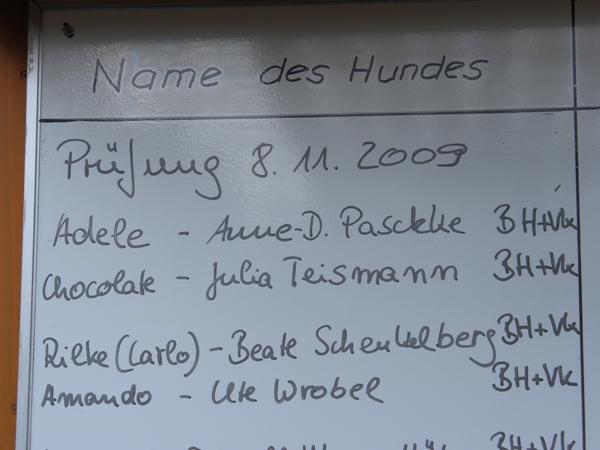 Name des Hundes
Prüfung 8.11.2009
Adele - Anne-D. Paschke BH+Vk
Chocolate - Julia Teismann BH+Vk
Rilke (Carlo) - Beate Schenkelberg BH+Vk
Amando - Ute Wrobel BH+Vk
BH+Vk